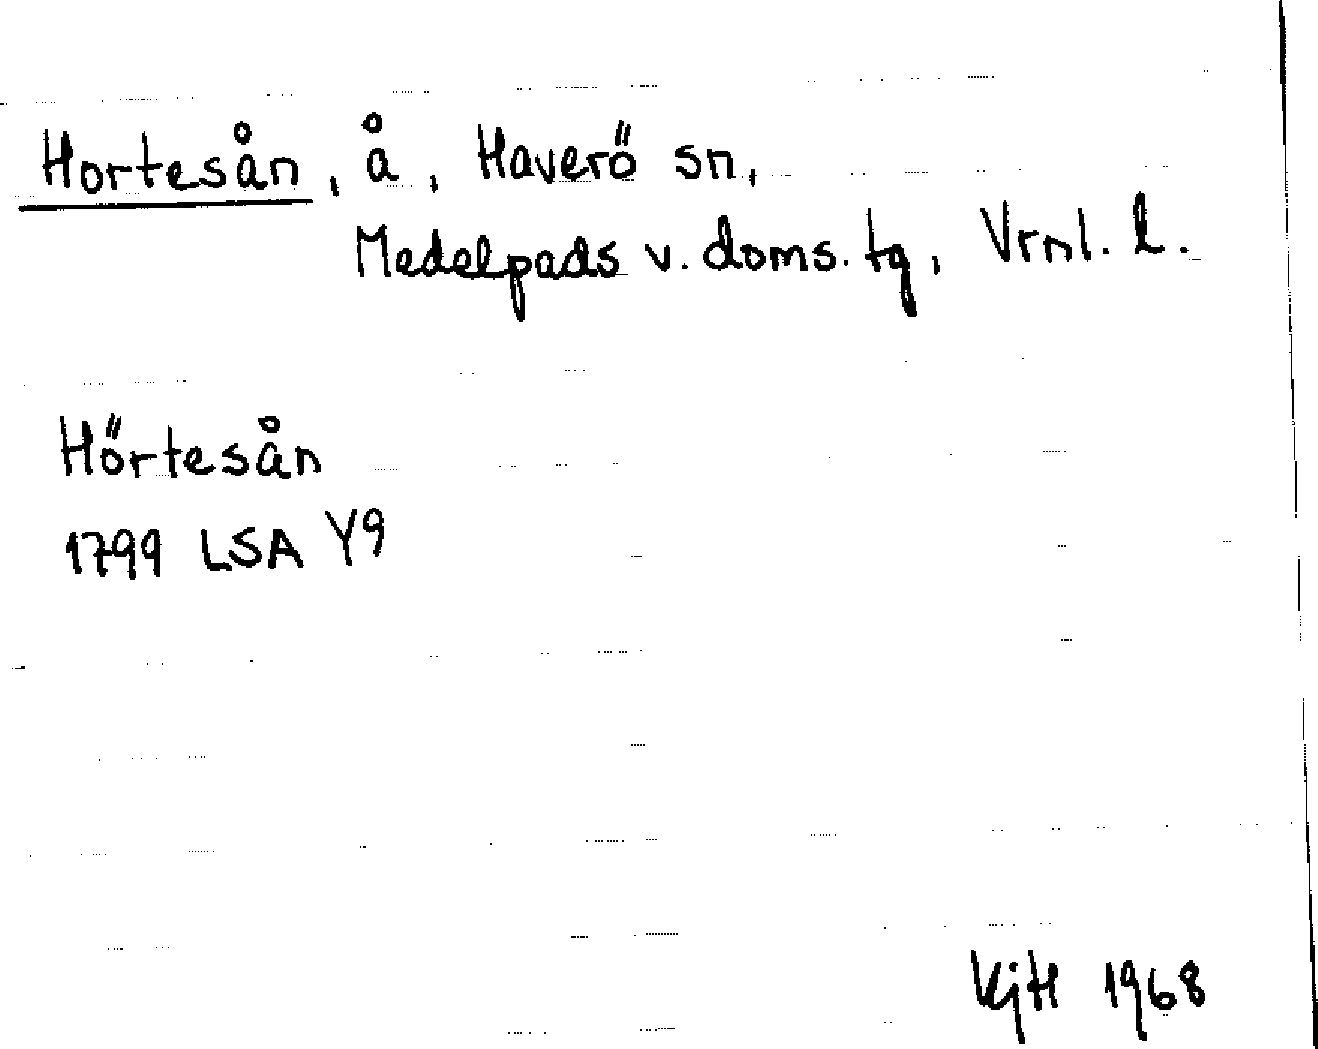 Hortesån, å, Haverö sn,
Medelpads v. doms. tg, Vrnl. l.
Hörtesån
1799 LSA Y9
KjH 1968